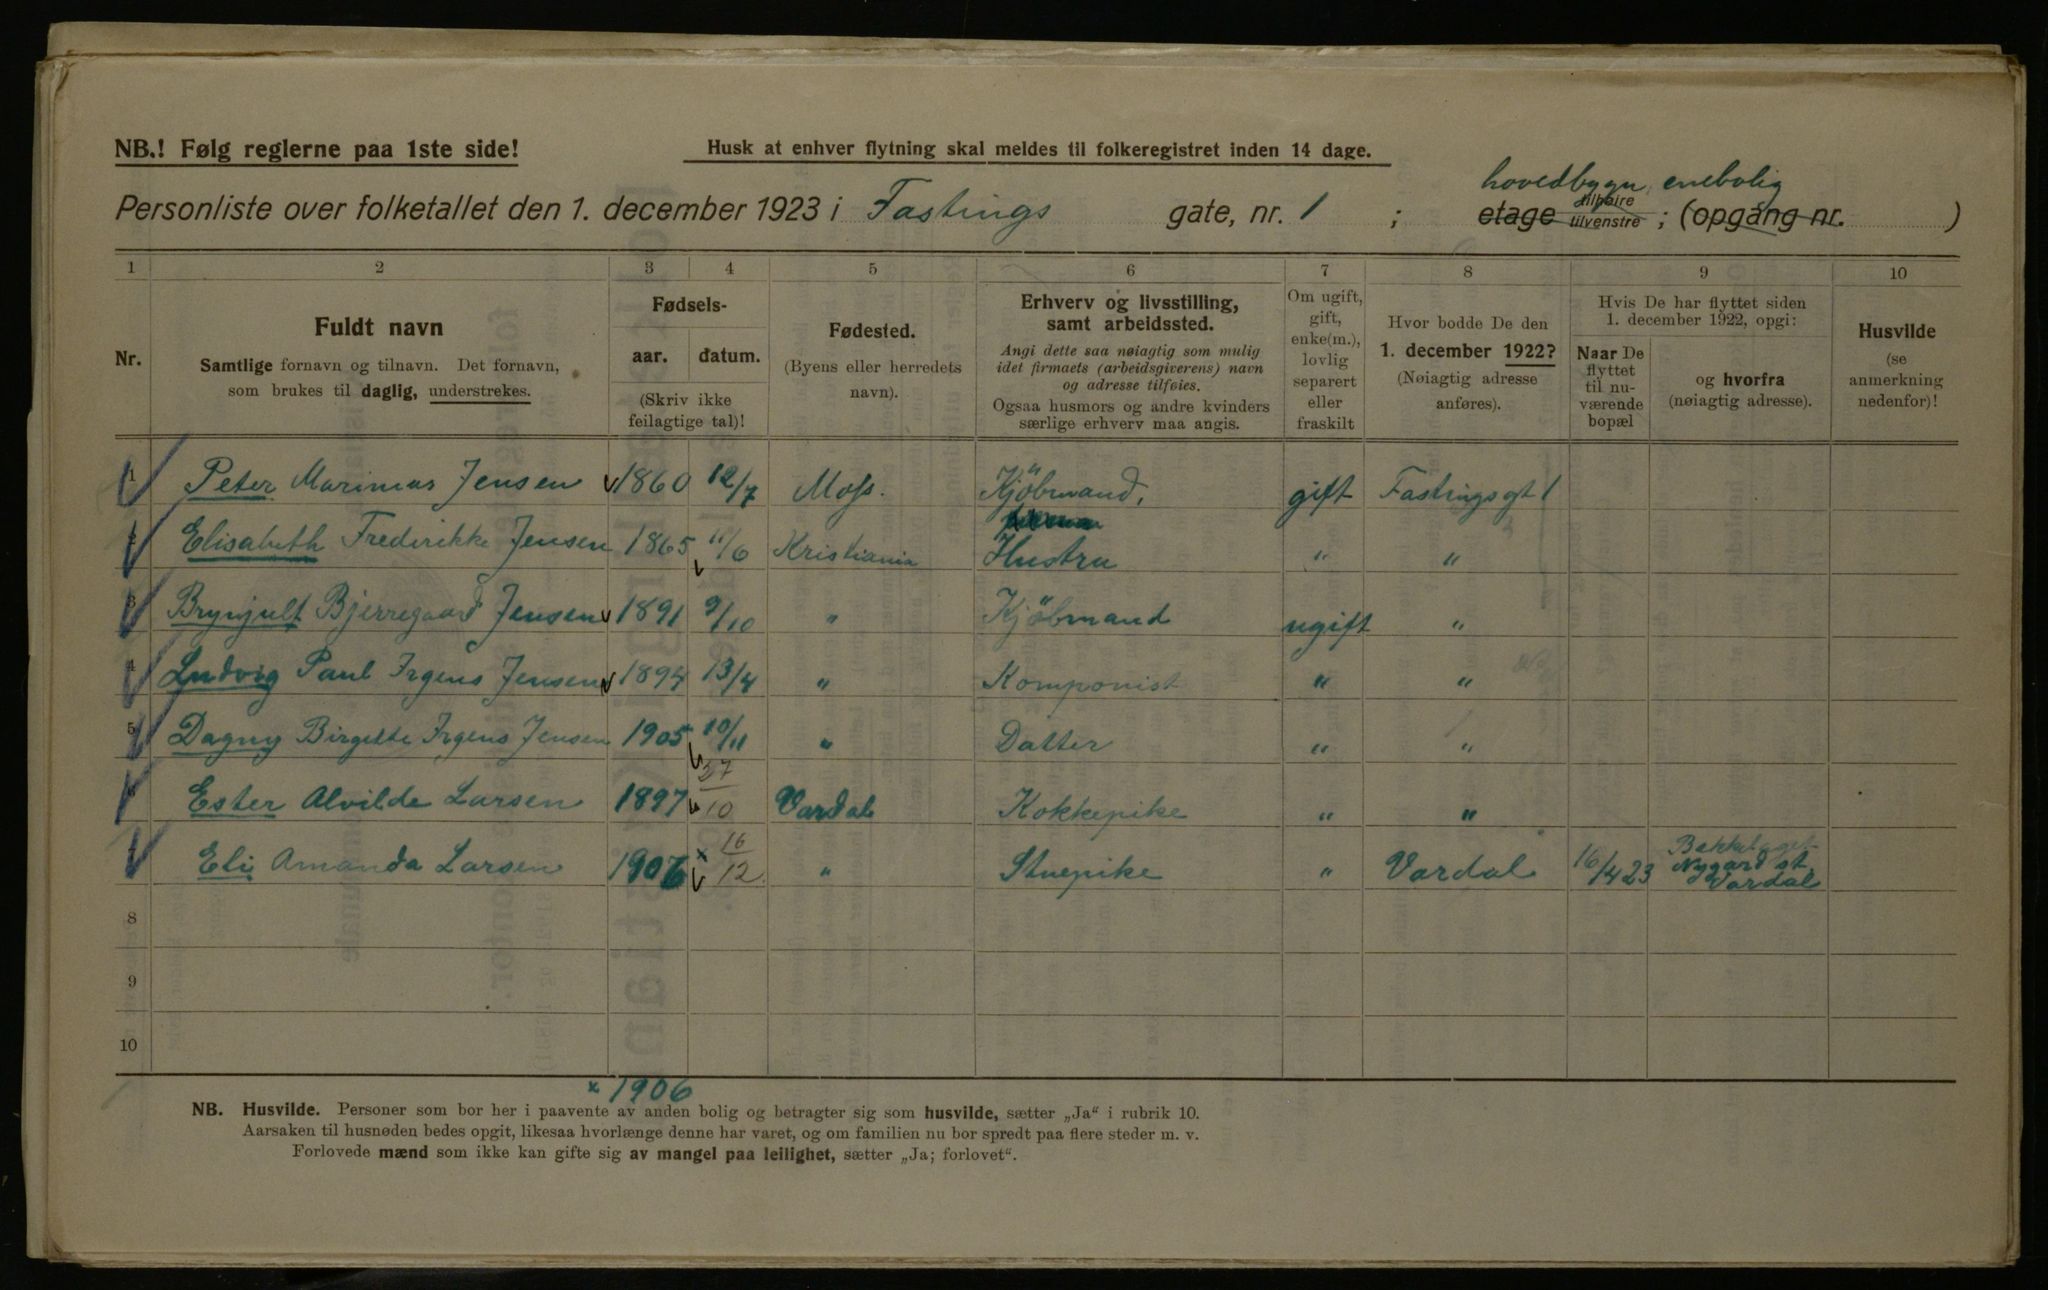 NB.! Følg reglerne paa 1ste side!
Husk at enhver flytning skal meldes til folkeregistret inden 14 dage.
hovedbygn, enebolig
Personliste over folketallet den 1. december 1923 i Fastings gate, nr. 1 ; etage tilhøire tilvenstre ; (opgang nr. )
1 2 3 4 5 6 7 8 9 10
Nr.
Fuldt navn
Samtlige fornavn og tilnavn. Det fornavn,
som brukes til daglig, understrekes.
Fødsels-
aar. datum.
(Skriv ikke
feilagtige tal)!
Fødested.
(Byens eller herredets
navn).
Erhverv og livsstilling,
samt arbeidssted.
Angi dette saa nøiagtig som mulig
idet firmaets (arbeidsgiverens) navn
og adresse tilføies.
Ogsaa husmors og andre kvinders
særlige erhverv maa angis.
Om ugift,
gift,
enke(m.),
lovlig
separert
eller
fraskilt
Hvor bodde De den
1. december 1922?
(Nøiagtig adresse
anføres).
Hvis De har flyttet siden
1. december 1922, opgi:
Naar De
flyttet
til nu-
værende
bopæl
og hvorfra
(nøiagtig adresse).
Husvilde
(se
anmerkning
nedenfor)!
1 Peter Marinius Jensen 1860 12/7 Moss. Kjöbmand, gift Fastings gt 1
2 Elisabeth Frederikke Jensen 1865 11/6 Kristiania Hustru " "
3 Brynjult Bjerregaard Jensen 1891 9/10 " Kjöbmand ugift "
4 Ludvig Paul Irgens Jensen 1894 13/4 " Komponist " "
5 Dagny Birgitte Irgens Jensen 1905 10/11 " Datter " "
6 Ester Alvilde Larsen 1897 27/10 Vardal Kokkepike " "
7 Eli Amanda Larsen 1906 x 16/12. " Stuepike " Vardal 16/4 23 Nygard st. Vardal
8
9
10
x 1906
NB. Husvilde. Personer som bor her i paavente av anden bolig og betragter sig som husvilde, sætter „Ja“ i rubrik 10.
Aarsaken til husnøden bedes opgit, likesaa hvorlænge denne har varet, og om familien nu bor spredt paa flere steder m. v.
Forlovede mænd som ikke kan gifte sig av mangel paa leilighet, sætter „Ja; forlovet“.